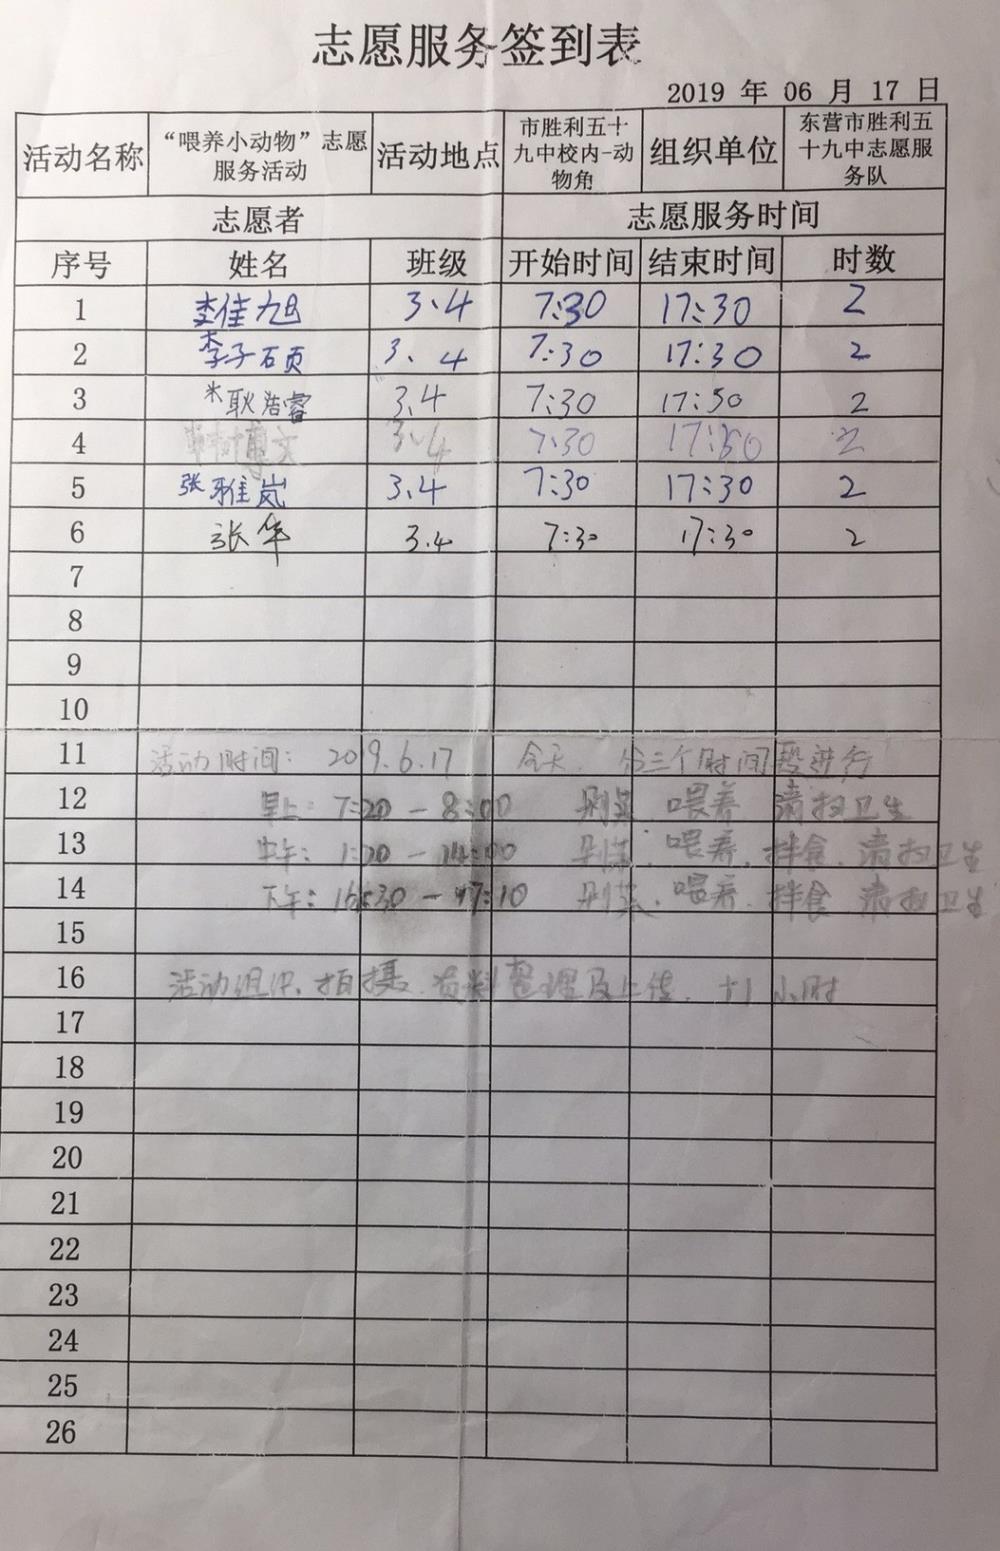 志愿服务签到表
2019 年 06 月 17 日
活动名称 “喂养小动物”志愿服务活动 活动地点 市胜利五十九中校内-动物角 组织单位 东营市胜利五十九中志愿服务队
志愿者 志愿服务时间
序号 姓名 班级 开始时间 结束时间 时数
1 李佳旭 3.4 7:30 17:30 2
2 李子硕 3.4 7:30 17:30 2
3 耿浩睿 3.4 7:30 17:50 2
4 博文 3.4 7:30 17:50 2
5 张雅岚 3.4 7:30 17:30 2
6 张华 3.4 7:30 17:30 2
7
8
9
10
11 活动时间: 2019.6.17 今天, 分三个时间段进行
12 早上: 7:20 — 8:00 剁菜、喂养、清扫卫生
13 中午: 1:20 — 14:00 剁菜、喂养、拌食、清扫卫生
14 下午: 16:30 — 17:10 剁菜、喂养、拌食、清扫卫生
15
16 活动组织、拍摄、资料整理及上传, +1小时
17
18
19
20
21
22
23
24
25
26